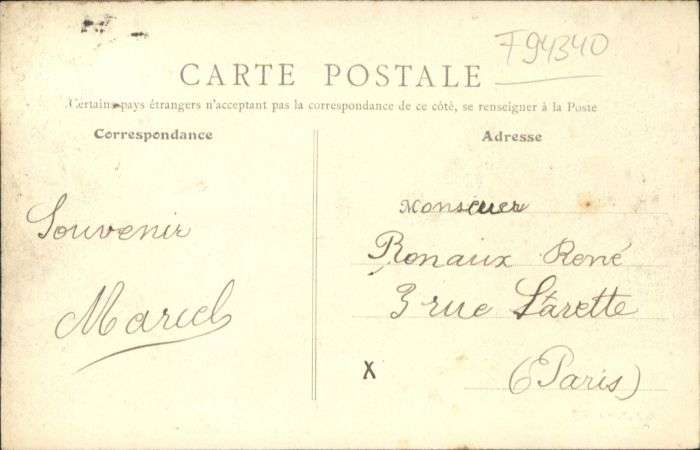 F94340
CARTE POSTALE
Certains pays étrangers n'acceptant pas la correspondance de ce côté, se renseigner à la Poste
Correspondance
Adresse
Souvenir
Marcel
Monsieur
Ronaux René
3 rue
(Paris)
X